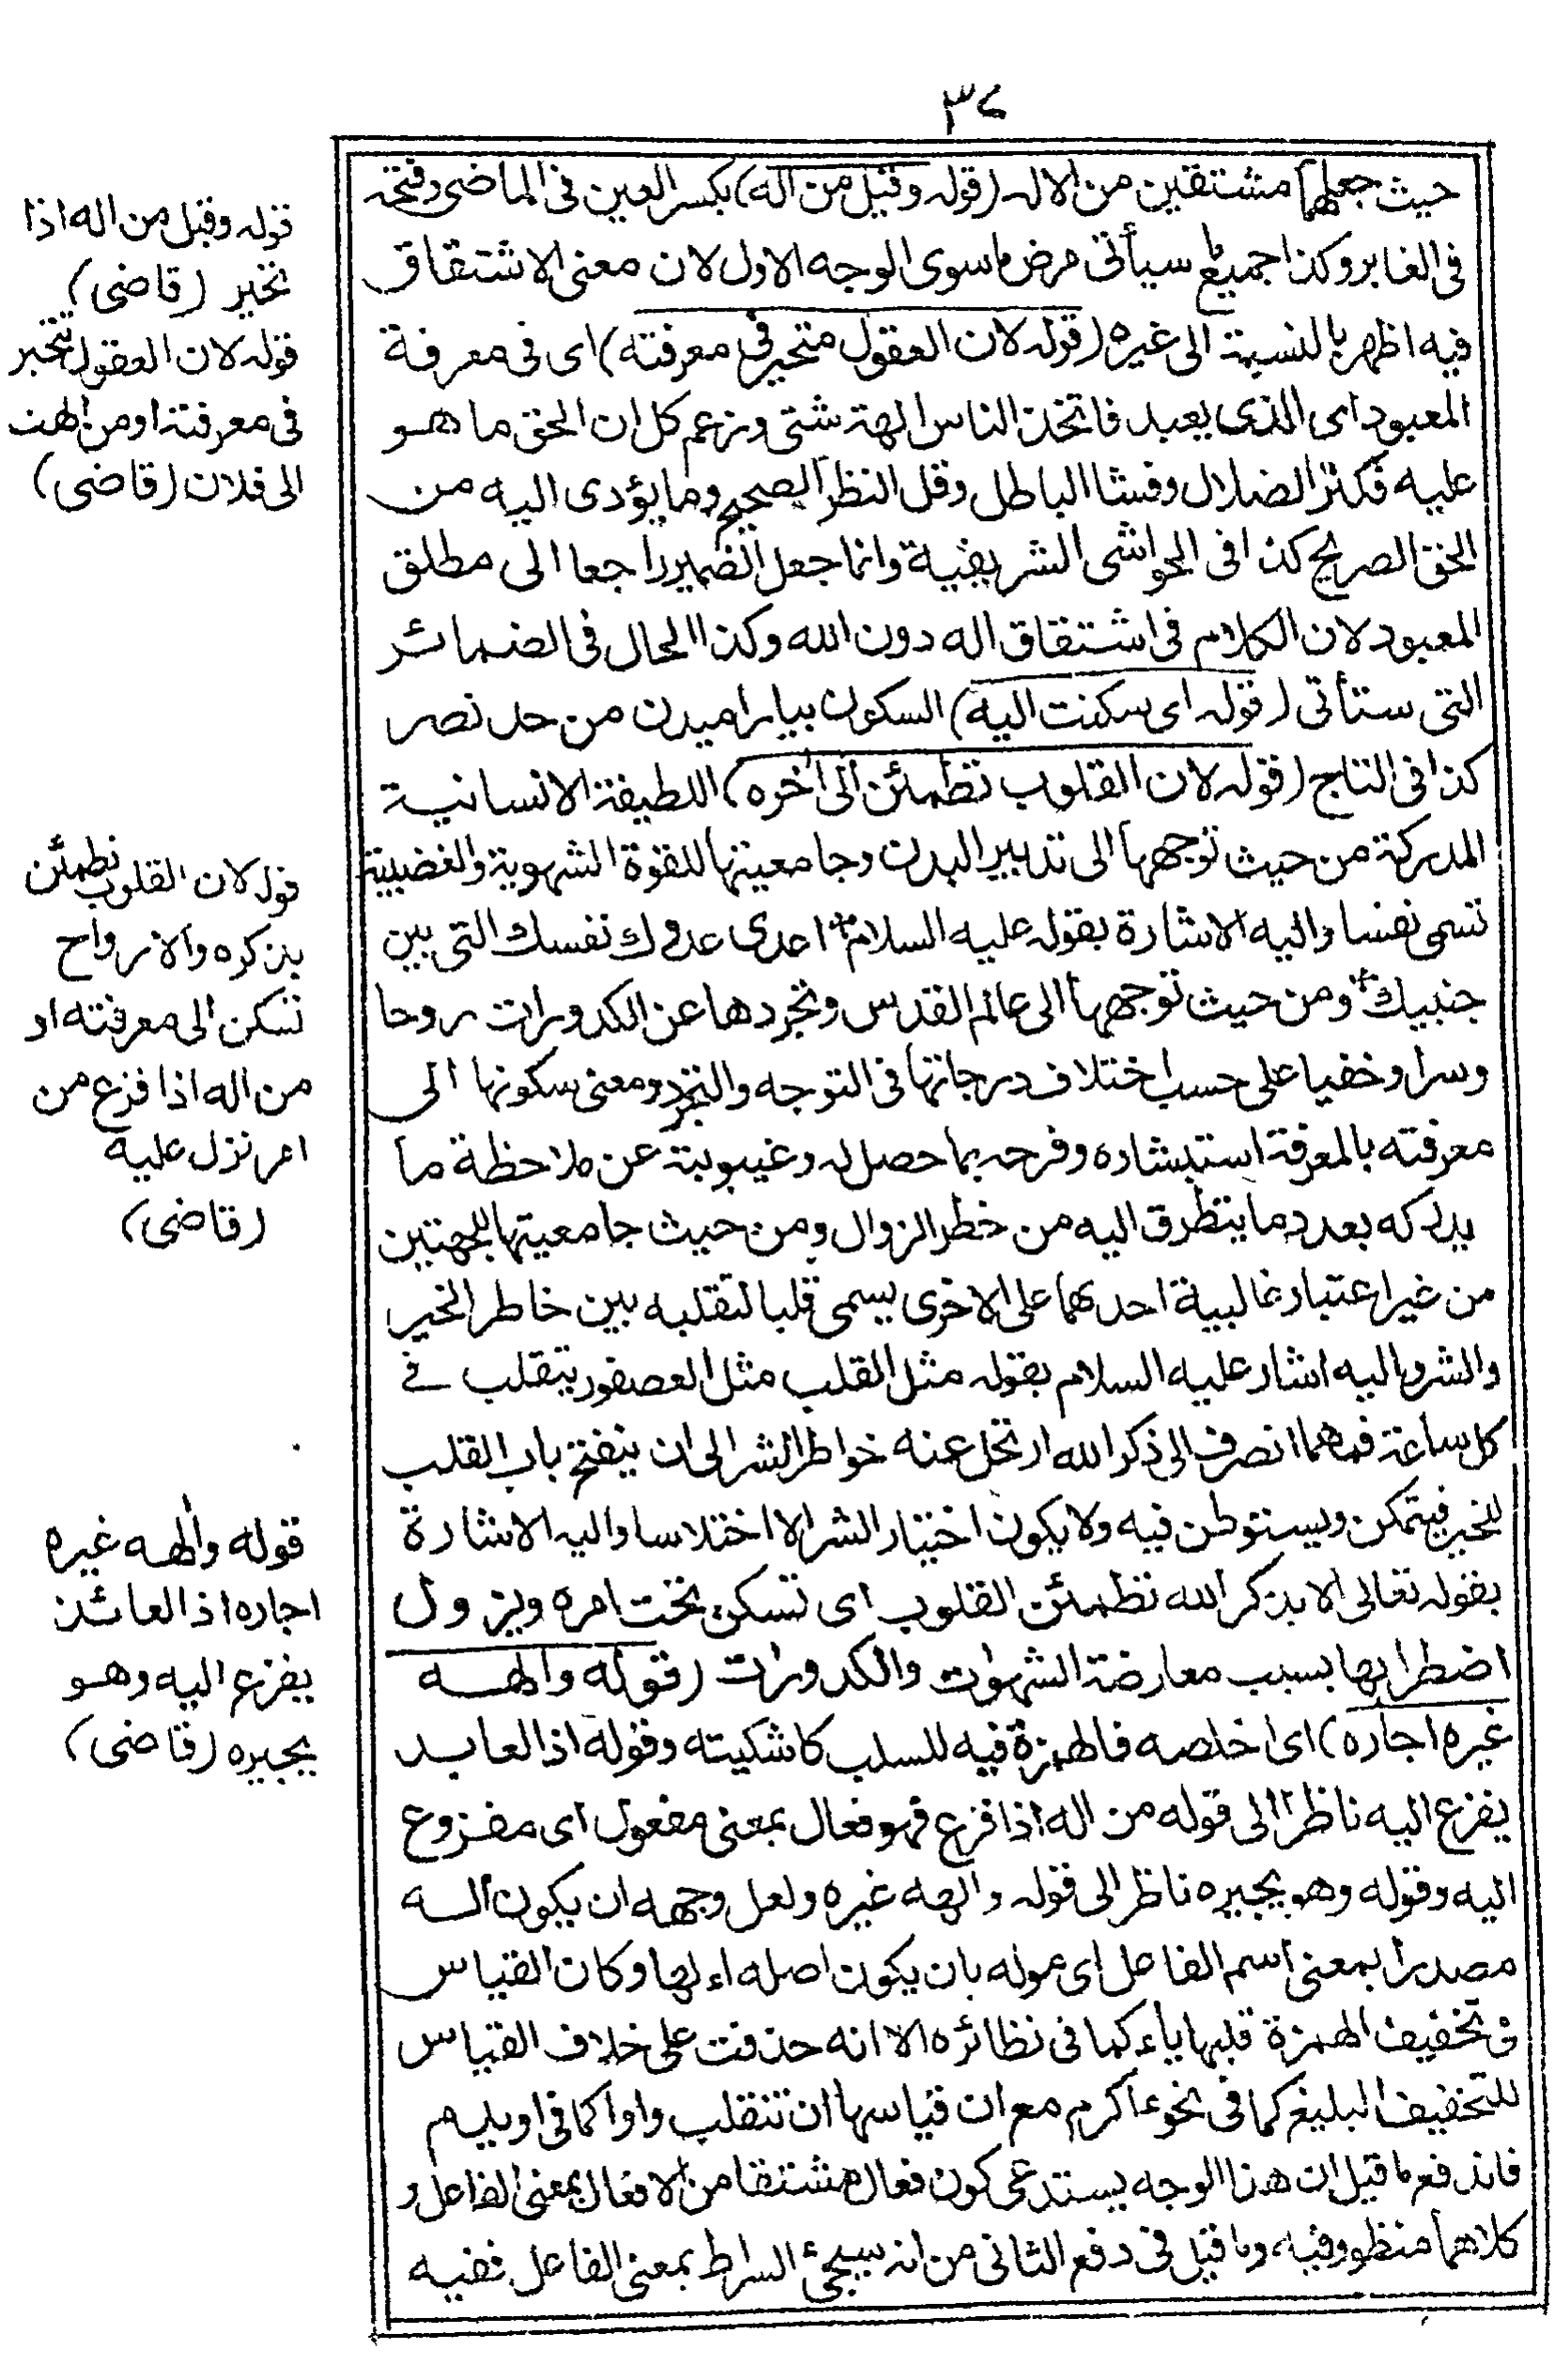 ٣٧
حيث جعلهما مشتقين من الاله (قوله وقيل من اله) بكسر العين فى الماضى وفتحه
فى الغابر وكذا جميع ما سيأتى مرض ما سوى الوجه الاول لان معنى الاشتقاق
فيه اظهر بالنسبة الى غيره (قوله لان العقول متحير فى معرفته) اى فى معرفة
المعبود اى الذى يعبد فاتخذ الناس الهة شتى وزعم كل ان الحق ما هو
عليه فكثر الضلال وفشا الباطل وقل النظر الصحيح وما يؤدى اليه من
الحق الصريح كذا فى الحواشى الشريفية وانما جعل الضمير راجعا الى مطلق
المعبود لان الكلام فى اشتقاق اله دون الله وكذا الحال فى الضمائر
التى ستأتى (قوله اى سكنت اليه) السكون بيارا ميدن من حد نصر
كذا فى التاج (قوله لان القلوب تطمئن الى اخره) اللطيفة الانسانية
المدركة من حيث توجهها الى تدبير البدن وجامعيتها للقوة الشهوية والغضبية
تسمى نفسا واليه الاشارة بقوله عليه السلام اعدى عدوك نفسك التى بين
جنبيك ومن حيث توجهها الى عالم القدس وتجردها عن الكدورات روحا
وسرا وخفيا على حسب اختلاف درجاتها فى التوجه والتجرد ومعنى سكونها الى
معرفته بالمعرفة استبشاره وفرحه بما حصل له وغيبوبته عن ملاحظة ما
يدركه بعد وما يتطرق اليه من خطر الزوال ومن حيث جامعيتها للجهتين
من غير اعتبار غالبية احدهما على الاخرى يسمى قلبا لتقلبه بين خاطر الخير
والشر واليه اشار عليه السلام بقوله مثل القلب مثل العصفور يتقلب فى
كل ساعة فمهما انصرف الى ذكر الله ارتحل عنه خواطر الشر الى ان ينفتح باب القلب
للخير فيتمكن ويستوطن فيه ولا يكون اختيار الشر الا اختلاسا واليه الاشارة
بقوله تعالى الا بذكر الله تطمئن القلوب اى تسكن تحت امره ويزول
اضطرابها بسبب معارضة الشهوات والكدورات (قوله والهه
غيره اجاره) اى اخلصه فالهمزة فيه للسلب كاشكيته وقوله اذ العابد
يفزع اليه ناظر الى قوله من اله اذا فزع فهو فعال بمعنى مفعول اى مفزوع
اليه وقوله وهو يجيره ناظر الى قوله والهه غيره ولعل وجهه ان يكون اله
مصدرا بمعنى اسم الفاعل اى موله بان يكون اصله اءلها وكان القياس
فى تخفيف الهمزة قلبها ياء كما فى نظائره الا انه حذفت على خلاف القياس
للتخفيف البليغ كما فى نحو ءاكرم مع ان قياسها ان تنقلب واوا كما فى اويدم
فاندفع ما قيل ان هذا الوجه يستدعى كون فعال مشتقا من الافعال بمعنى الفاعل و
كلاهما منظور فيه وما قيل فى دفع الثانى من انه سيجئ السراط بمعنى الفاعل ففيه
قوله وقيل من اله اذا
تحير (قاضى)
قوله لان العقول تتحير
فى معرفته او من الهت
الى فلان (قاضى)
قوله لان القلوب تطمئن
بذكره والارواح
تسكن الى معرفته او
من اله اذا فزع من
امر نزل عليه
(قاضى)
قوله والهه غيره
اجاره اذ العائذ
يفزع اليه وهو
يجيره (قاضى)